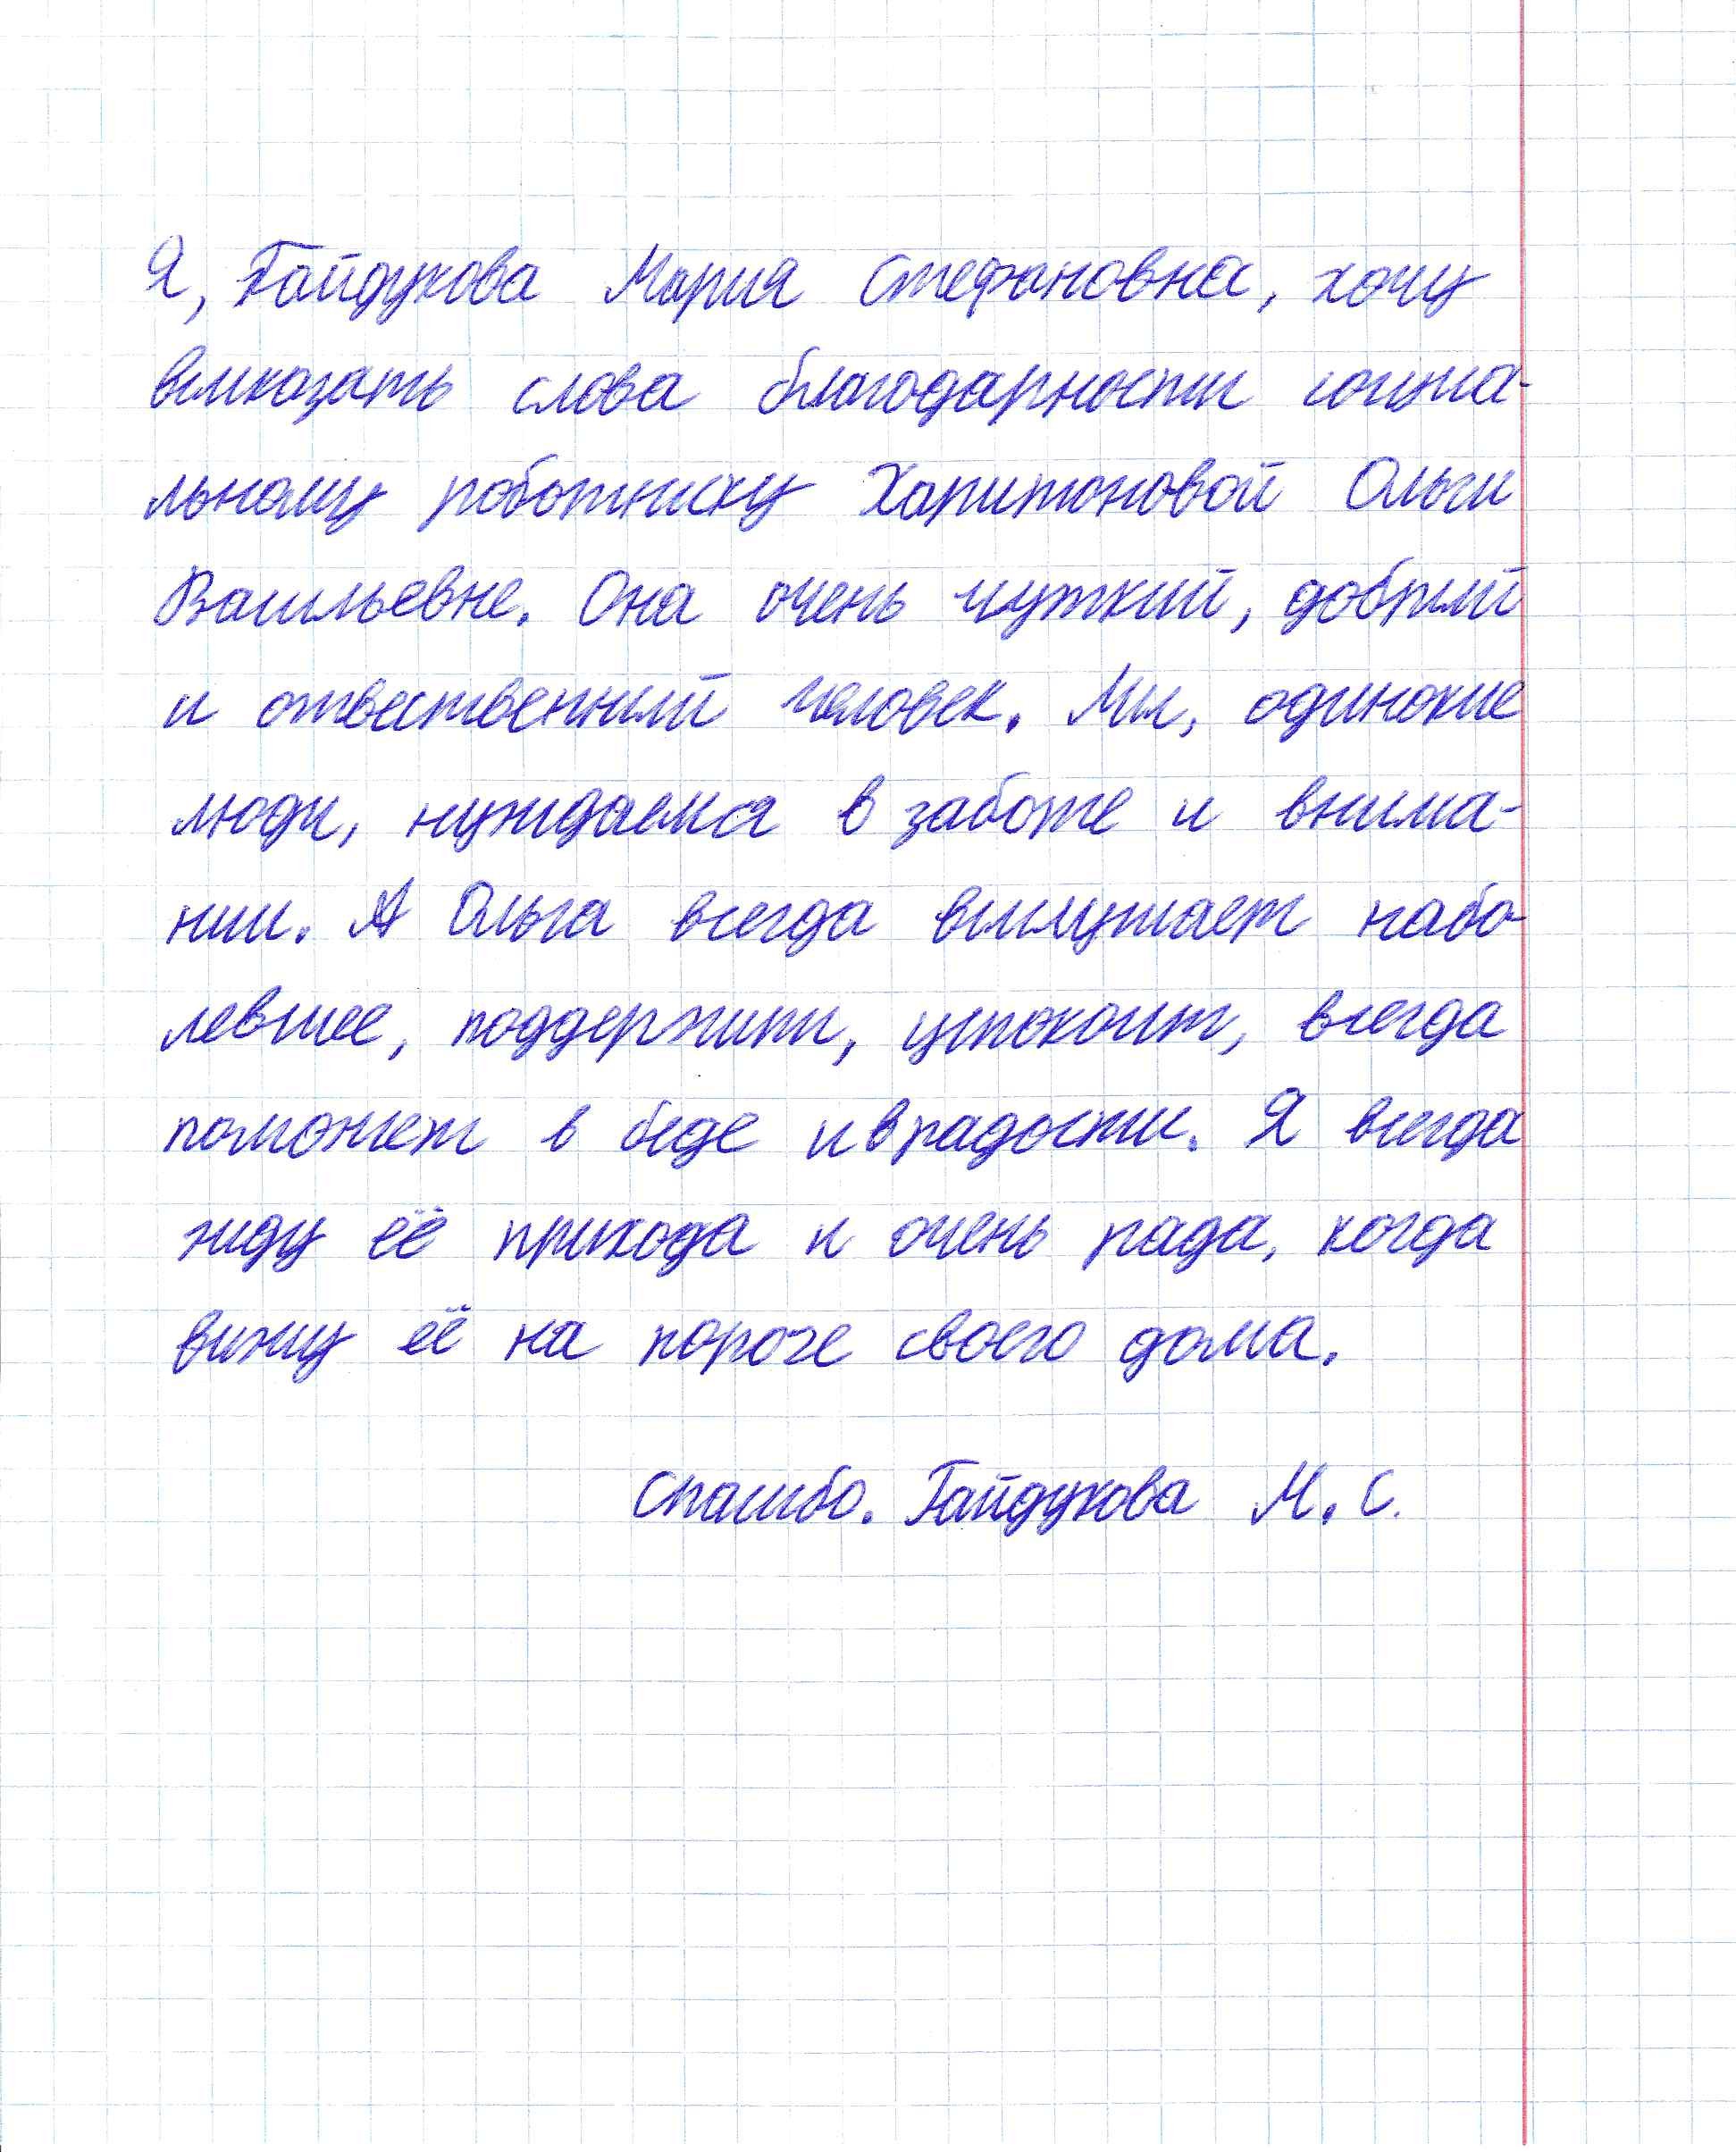 Я, Гайдукова Мария Стефановна, хочу
высказать слова благодарности социа-
льному роботнику Харитоновой Ольги
Васильевне. Она очень чуткий, добрый
и отвественный человек. Мы, одинокие
люди, нуждаемся в заботе и внима-
нии. А Ольга всегда выслушает набо-
левшее, поддержит, успокоит, всегда
поможет в беде и в радости. Я всегда
жду её прихода и очень рада, когда
вижу её на пороге своего дома.
Спасибо. Гайдукова М. С.